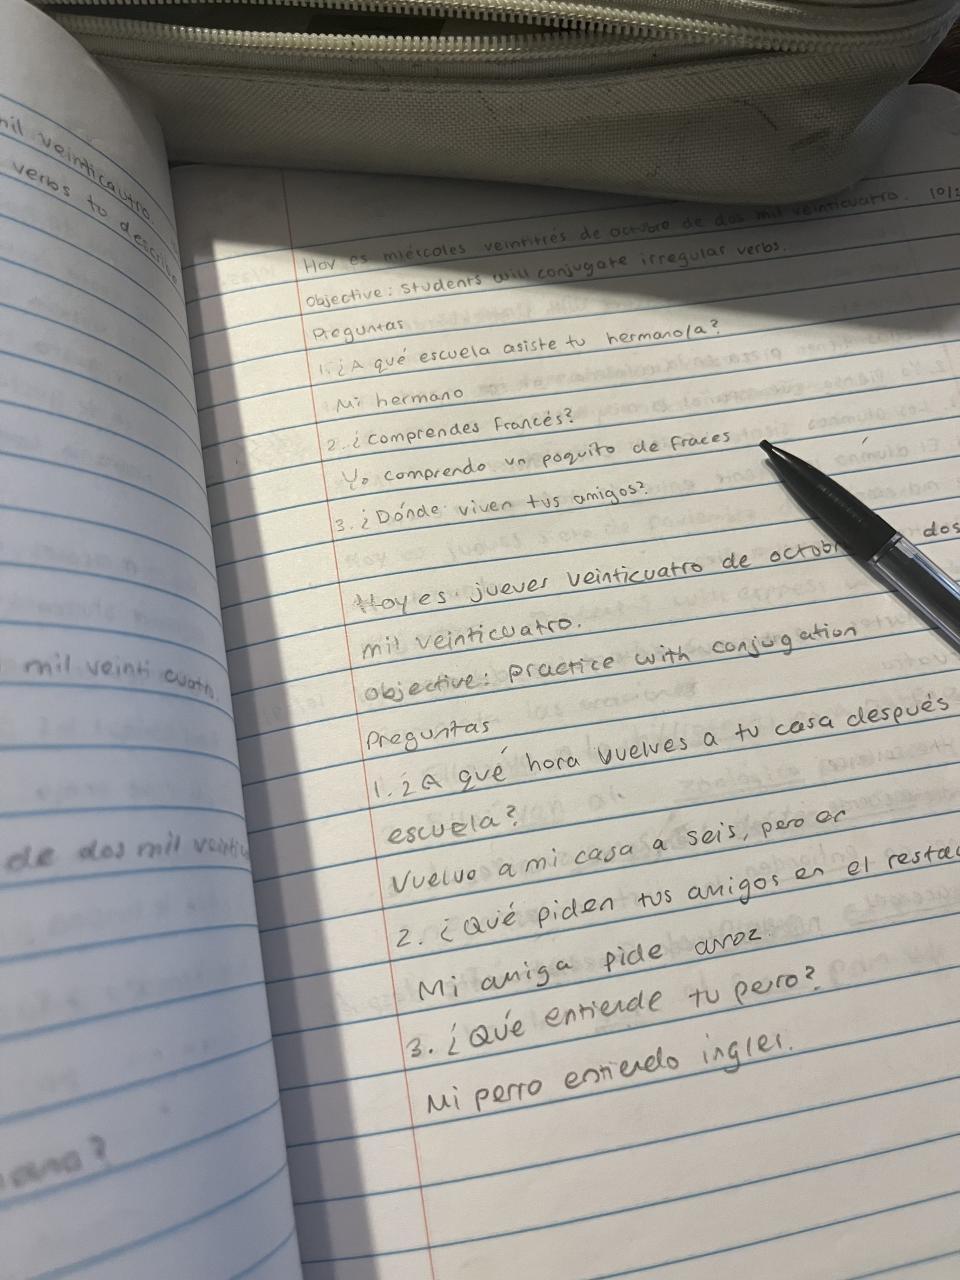 mil veinticautro.
verbs to describe
mil veinti cuatro.
de dos mil
Hoy es miércoles veintitrés de octubre de dos mil veinticuatro. 10/
objective: students will conjugate irregular verbs.
Preguntas
1. ¿A qué escuela asiste tu hermano/a?
Mi hermano
2. ¿comprendes francés?
Yo comprendo un poquito de fraces
3. ¿Dónde viven tus amigos?
Hoy es jueves veinticuatro de octobr dos
mil veinticuatro.
objective: practice with conjugation
Preguntas
1. ¿A qué hora vuelves a tu casa después
escuela?
Vuelvo a mi casa a seis, pero en
2. ¿Qué piden tus amigos en el restau
Mi amiga pide arroz.
3. ¿Qué entiende tu perro?
Mi perro entiendo ingles.